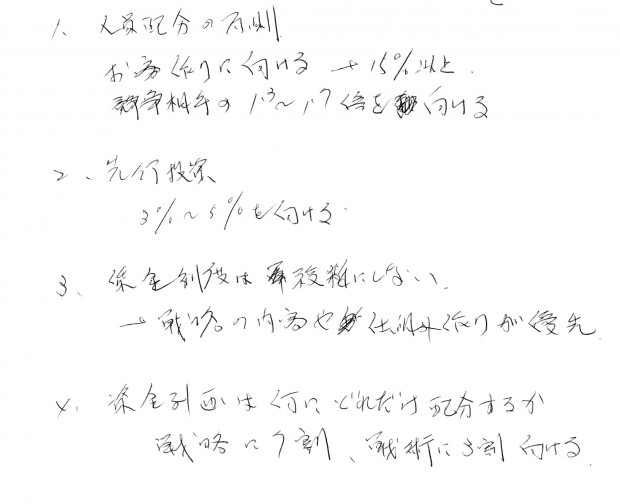 1、人員配分の原則
お客作りに向ける → 15%以上.
競争相手の 1.3~1.7倍を向ける
2、先行投資
3%~5%を向ける.
3、資金制度は複雑にしない.
→ 戦略の内容や仕組み作りが優先
4、資金計画は何にどれだけ配分するか
戦略に7割、戦術に3割向ける.